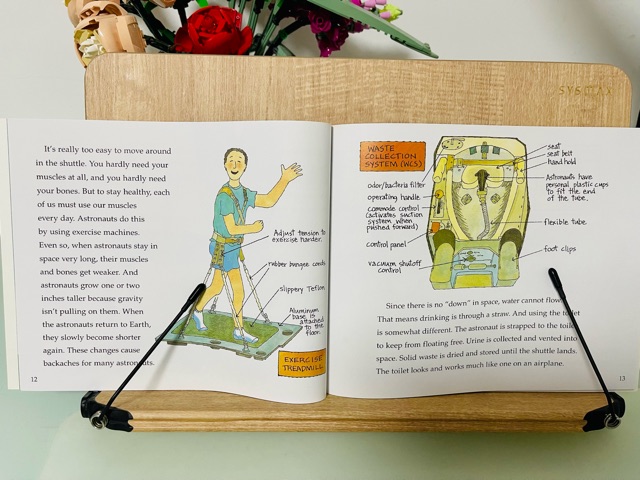 SYSMAX
It's really too easy to move around
in the shuttle. You hardly need your
muscles at all, and you hardly need
your bones. But to stay healthy, each
of us must use our muscles
every day. Astronauts do this
by using exercise machines.
Even so, when astronauts stay in
space very long, their muscles
and bones get weaker. And
astronauts grow one or two
inches taller because gravity
isn't pulling on them. When
the astronauts return to Earth,
they slowly become shorter
again. These changes cause
backaches for many astronauts.
12
Adjust tension to
exercise harder.
rubber bungee cords
slippery Teflon
Aluminum
base is
attached
to the
floor.
EXERCISE
TREADMILL
WASTE
COLLECTION
SYSTEM (WCS)
odor/bacteria filter
operating handle
commode control
(activates suction
system when
pushed forward)
control panel
vacuum shutoff
control
seat
seat belt
hand hold
Astronauts have
personal plastic cups
to fit the end
of the tube.
flexible tube
foot clips
Since there is no "down" in space, water cannot flow.
That means drinking is through a straw. And using the toilet
is somewhat different. The astronaut is strapped to the toilet
to keep from floating free. Urine is collected and vented into
space. Solid waste is dried and stored until the shuttle lands.
The toilet looks and works much like one on an airplane.
13